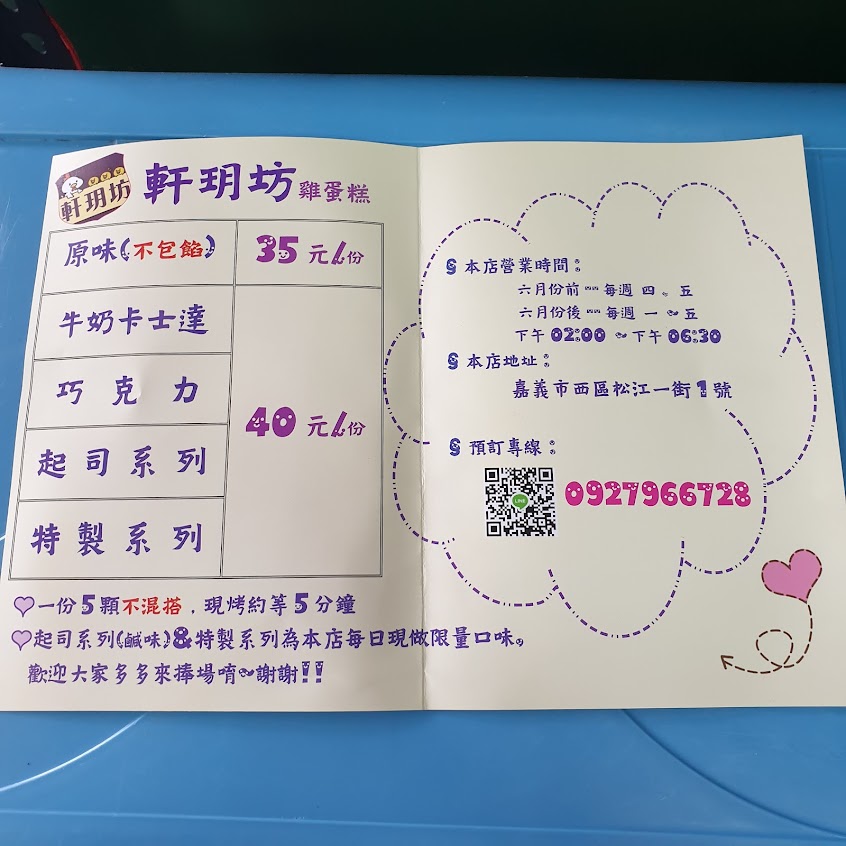 軒玥坊
軒玥坊 雞蛋糕
原味(不包餡) 35 元/份
牛奶卡士達
巧克力
起司系列
特製系列
40 元/份
一份5顆不混搭，現烤約等5分鐘
起司系列(鹹味)&特製系列為本店每日現做限量口味。
歡迎大家多多來捧場唷~謝謝!!
本店營業時間：
六月份前--每週 四、五
六月份後--每週 一~五
下午 02:00 ~ 下午 06:30
本店地址：
嘉義市西區松江一街1號
預訂專線：
LINE
0927966728